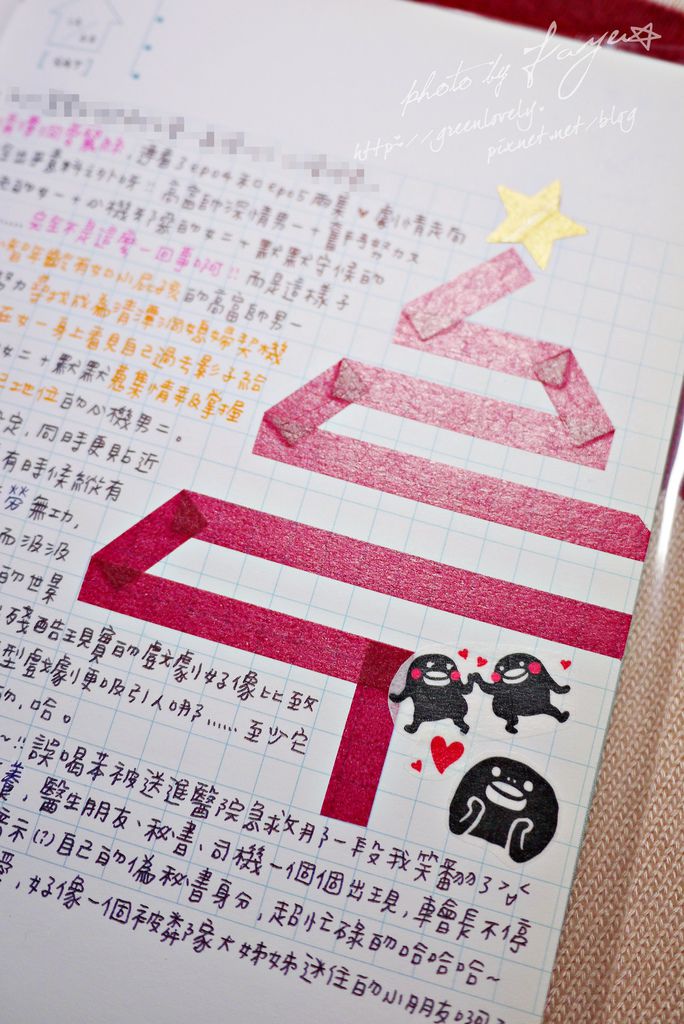 photo by Faye
http://greenlovely.
pixnet.net/blog
，連看了ep04和ep05兩集♥劇情走向
!! 高富帥深情男一＋奮鬥努力女
心機有錢的女二＋默默守候的
……完全不是這麼一回事啊!! 而是這樣子
智年齡有如小屁孩的高富帥男一
努力尋找成為清潭洞媳婦契機
在女一身上看見自己過去影子給
女二＋默默蒐集情事及掌握
地位的心機男二。
定，同時更貼近
有時候縱有
勞無功，
而汲汲
的世界
殘酷現實的戲劇好像比較
型戲劇更吸引人唷……至少它
的，哈。
~!! 誤喝茶被送進醫院急救那一段我笑翻了>д<
，醫生朋友、秘書、司機一個個出現，車會長不停
示(?)自己的偽秘書身分，超忙碌的哈哈哈~
，好像一個被鄰家大姊姊迷住的小朋友啊